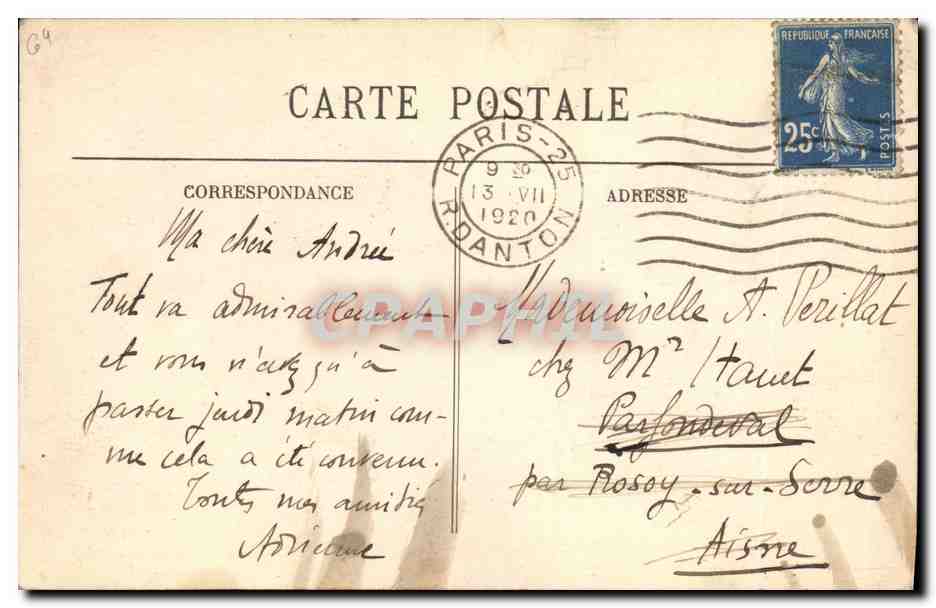 64
REPUBLIQUE FRANÇAISE
25c
POSTES
CARTE POSTALE
PARIS-25
9
13 VII
1920
R. DANTON
CORRESPONDANCE
ADRESSE
Ma chère Andrée
Tout va admirablement
et vous n'avez qu'à
passer jeudi matin com-
me cela a été convenu.
Toutes mes amitiés
Adrienne
Mademoiselle A. Perillat
chez Mr
Parfondeval
par Rosoy-sur-Serre
Aisne
CPAPHIL